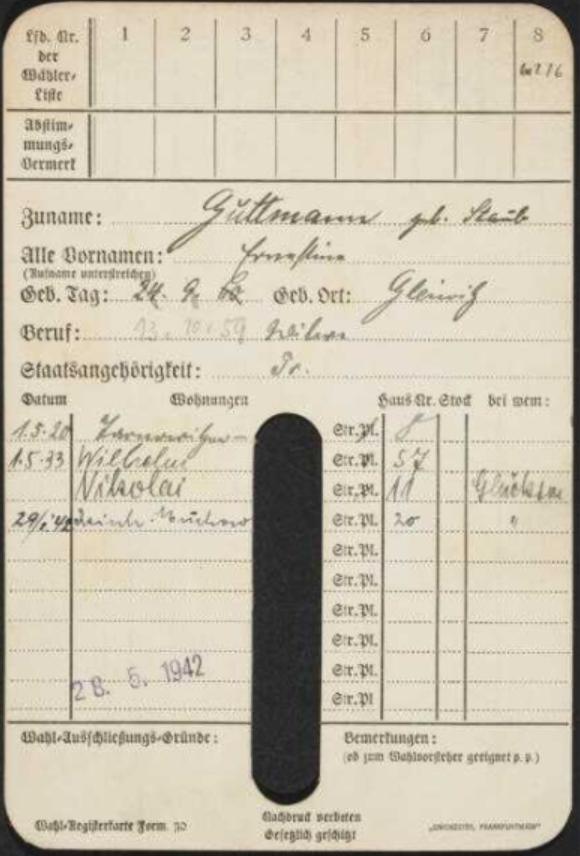 Lfd. Nr. der Wähler-Liste 1 2 3 4 5 6 7 8
Abstim-mungs-Vermerk
Zuname: Guttmann geb. Staub
Alle Vornamen: Ernestine
(Rufname unterstreichen)
Geb. Tag: 24. 9. Geb. Ort: Gleiwitz
Beruf: 13. 10. 59 Witwe
Staatsangehörigkeit: Pr.
Datum Wohnungen Haus Nr. Stock bei wem:
1.5.20 Tarnowitzer- Str. Pl. 8
1.5.33 Wilhelm Str. Pl. 57
Nikolai Str. Pl. 11
29/ Str. Pl. 20 "
Str. Pl.
Str. Pl.
Str. Pl.
Str. Pl.
Str. Pl.
28. 5. 1942
Str. Pl
Wahl-Ausschließungs-Gründe: Bemerkungen:
(ob zum Wahlvorsteher geeignet p. p.)
Wahl-Registerkarte Form. 30
Nachdruck verboten
Gesetzlich geschützt